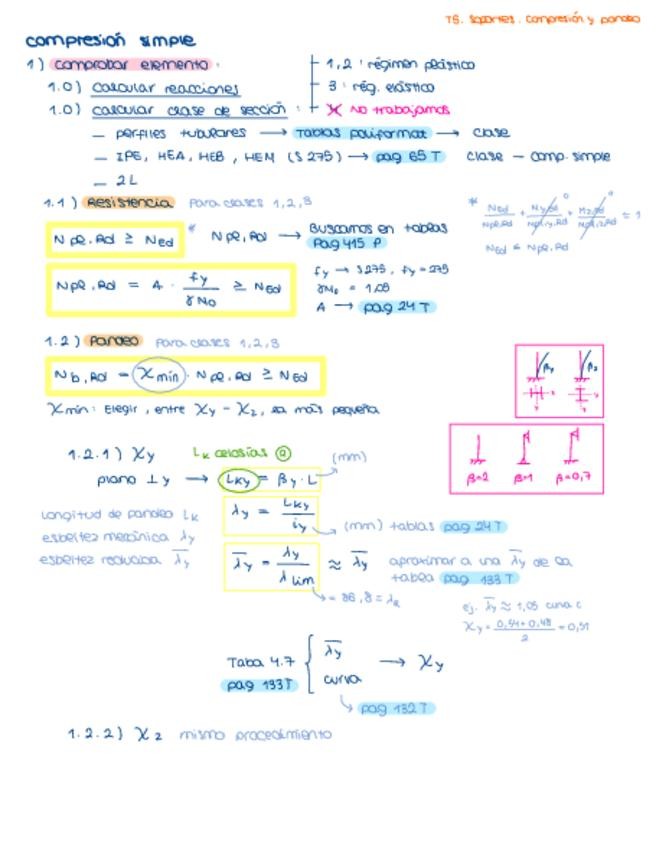 T5. Soportes. Compresión y pandeo
compresión simple
1) comprobar elemento:
1,2: régimen plástico
1.0) calcular reacciones
3: rég. elástico
1.0) calcular clase de sección:
✗ No trabajamos
— perfiles tubulares → Tablas poliformat → clase
— IPE, HEA, HEB, HEM (S 275) → pag 65 T clase - comp. simple
— 2L
1.1) Resistencia para clases 1,2,3
Npl,Rd ≥ NEd
* Npl,Rd → Buscamos en tablas
pag 415 P
* NEd/Npl,Rd + My,Ed/Mpl,y,Rd + Mz,Ed/Mpl,z,Rd ≤ 1
NEd ≤ Npl,Rd
Npl,Rd = A · fy/γM0 ≥ NEd
fy → S275, fy = 275
γM0 = 1,05
A → pag 24 T
1.2) Pandeo para clases 1,2,3
Nb,Rd = χmin · Npl,Rd ≥ NEd
χmin: Elegir, entre χy - χz, la más pequeña
βy βz
β=2 β=1 β=0,7
1.2.1) χy LK celosías @ (mm)
plano ⊥ y → LKy = βy · L
longitud de pandeo LK
esbeltez mecánica λy
esbeltez reducida λ̄y
λy = LKy/iy
(mm) tablas pag 24 T
λ̄y = λy/λlim ≈ λ̄y aproximar a una λ̄y de la
tabla pag 133 T
= 86,8 = λR
ej. λ̄y ≈ 1,05 curva c
χy = (0,54+0,48)/2 = 0,51
Tabla 4.7 { λ̄y → χy
pag 133 T curva
pag 132 T
1.2.2) χz mismo procedimiento